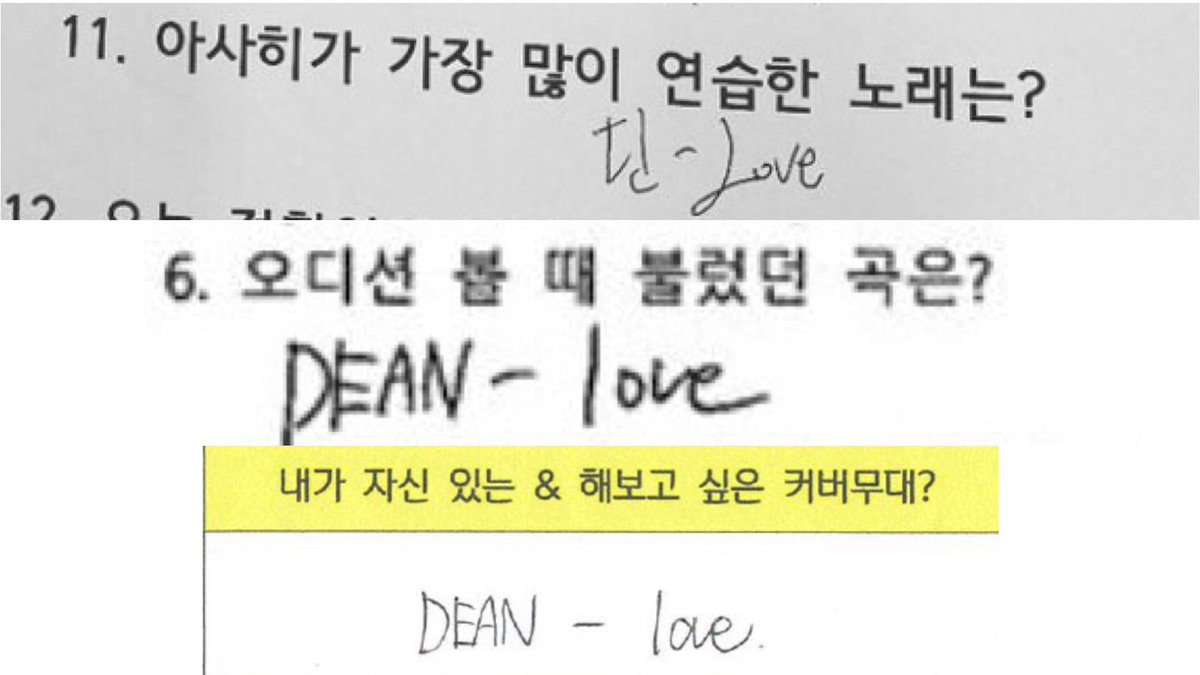 11. 아사히가 가장 많이 연습한 노래는?
딘 - Love
12. 오늘
6. 오디션 볼 때 불렀던 곡은?
DEAN - love
내가 자신 있는 & 해보고 싶은 커버무대?
DEAN - love.